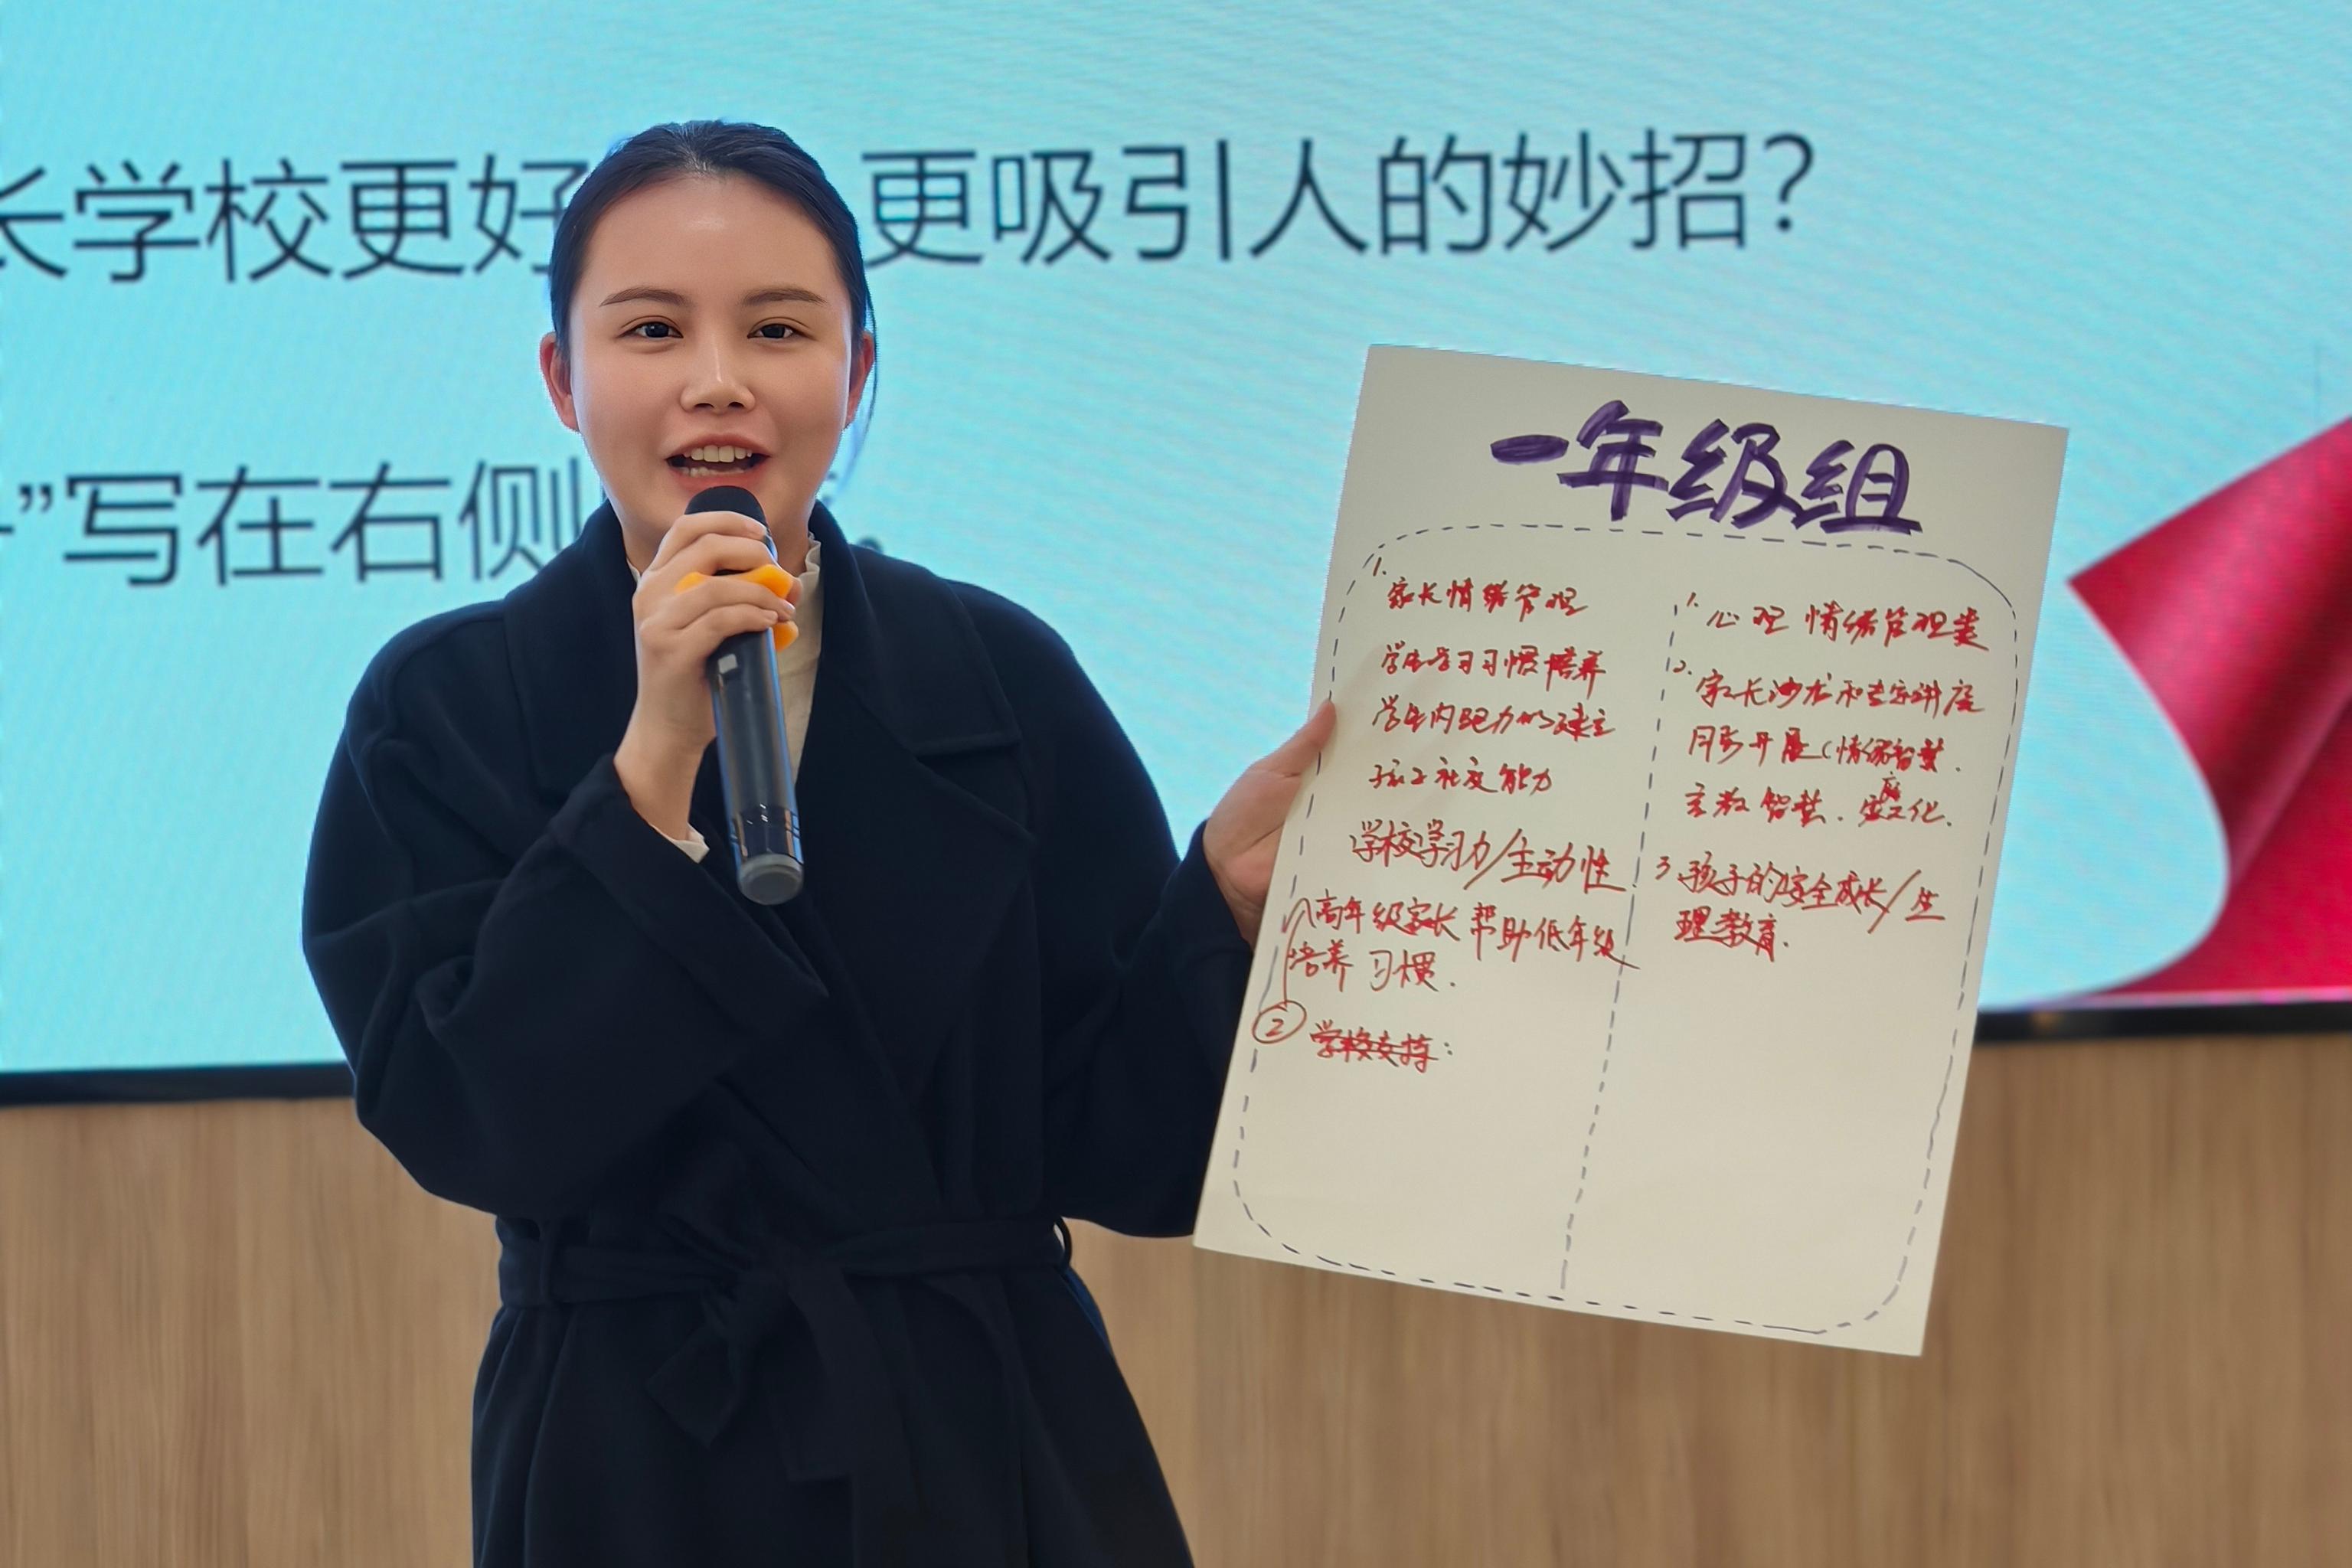 长学校更好 更吸引人的妙招？
”写在右侧
一年级组
1.
家长情绪管理
学生学习习惯培养
学生内驱力的建立
孩子社交能力
学校学习力/主动性
高年级家长帮助低年级
培养习惯.
②学校支持：
1.心理 情绪管理类
2.家长沙龙和专家讲座
同步开展（情绪智慧.
言教智慧.家庭文化.
3.孩子的安全成长/生
理教育.